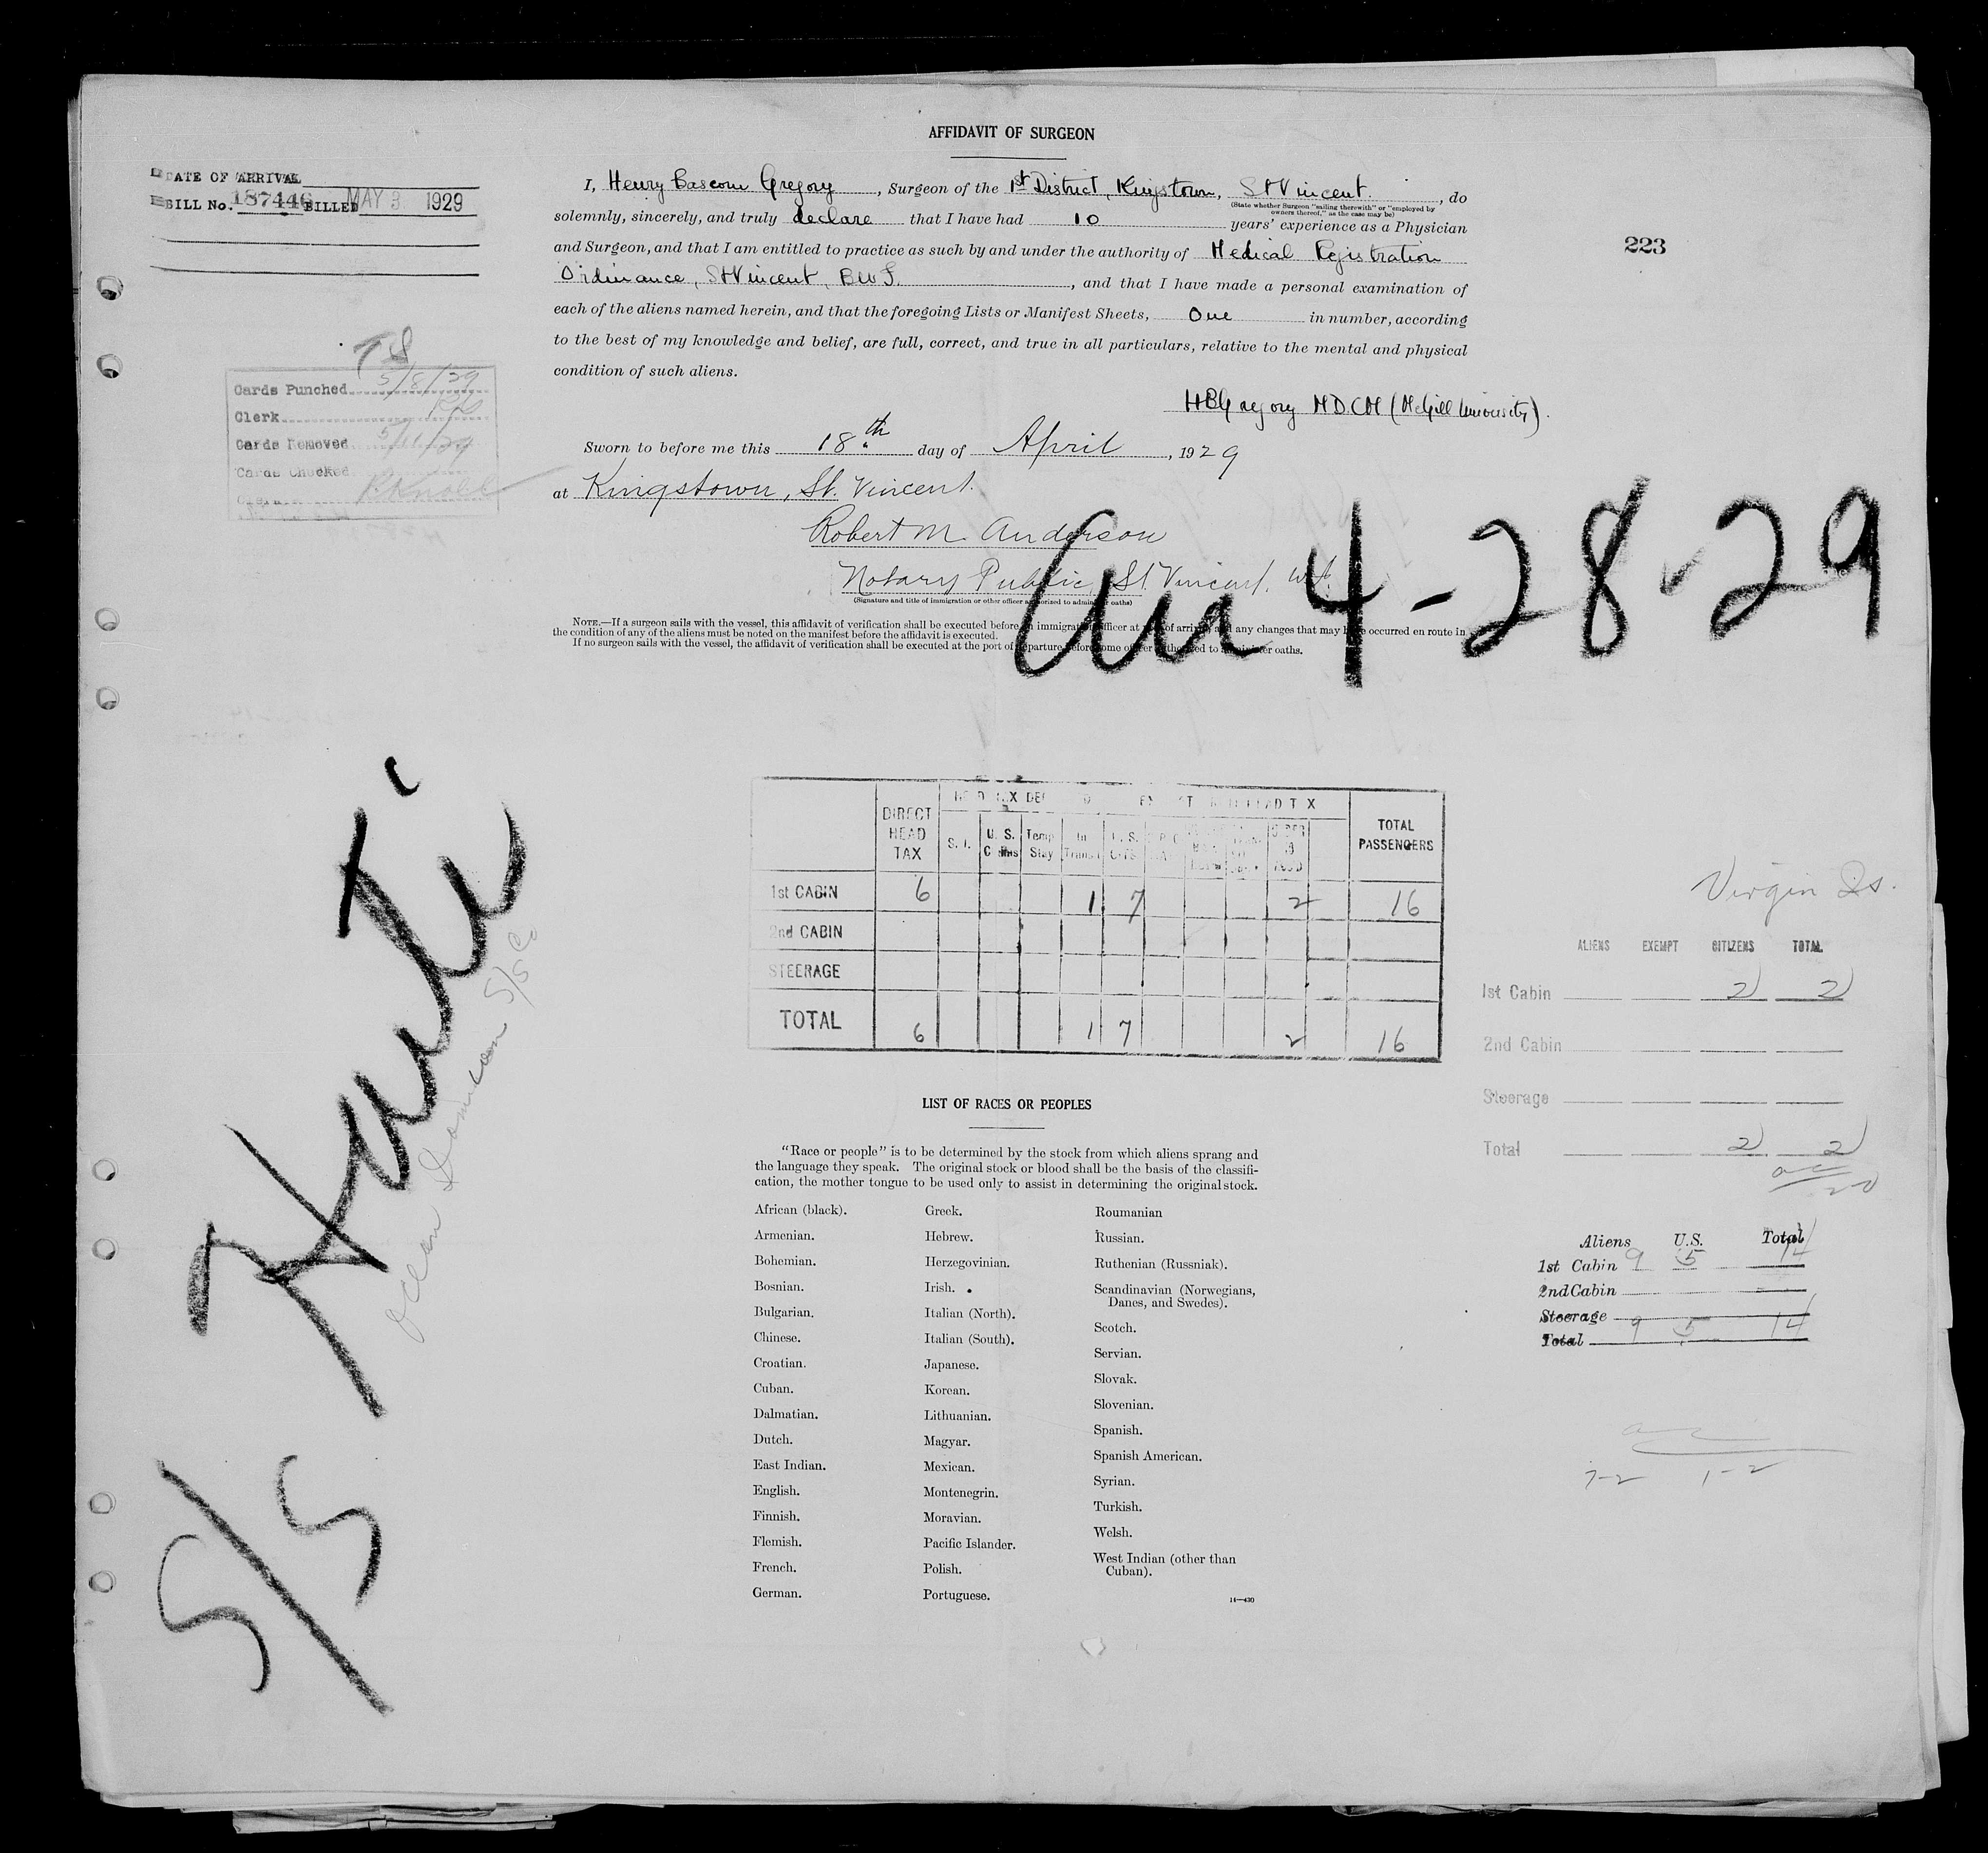 AFFIDAVIT OF SURGEON
DATE OF ARRIVAL
BILL No. 187446 BILLED MAY 3 1929
223
I, Henry Bascom Gregory, Surgeon of the 1st District, Kingstown, St Vincent, do
(State whether Surgeon "sailing therewith" or "employed by
owners thereof," as the case may be)
solemnly, sincerely, and truly declare that I have had 10 years' experience as a Physician
and Surgeon, and that I am entitled to practice as such by and under the authority of Medical Registration
Ordinance, St Vincent, B.W.I., and that I have made a personal examination of
each of the aliens named herein, and that the foregoing Lists or Manifest Sheets, One in number, according
to the best of my knowledge and belief, are full, correct, and true in all particulars, relative to the mental and physical
condition of such aliens.
HBGregory M.D.C.M (McGill University).
Sworn to before me this 18th day of April, 1929
at Kingstown, St. Vincent.
Robert M. Anderson
Notary Public, St. Vincent. W.I.
(Signature and title of immigration or other officer authorized to administer oaths)
NOTE.—If a surgeon sails with the vessel, this affidavit of verification shall be executed before an immigration officer at port of arrival and any changes that may have occurred en route in
the condition of any of the aliens must be noted on the manifest before the affidavit is executed.
If no surgeon sails with the vessel, the affidavit of verification shall be executed at the port of departure before some officer authorized to administer oaths.
TS
Cards Punched 5/8/29
Clerk
Cards Removed 5/11/29
Cards Checked
Clerk P. Knobel
4-28-29
S/S Haiti
Ocean Dominion S/S Co
DIRECT HEAD TAX
S. I.
U. S. C
Temp Stay
In Transit
U. S. CITS
TOTAL PASSENGERS
1st CABIN 6 1 7 2 16
2nd CABIN
STEERAGE
TOTAL 6 1 7 2 16
Virgin Is.
ALIENS EXEMPT CITIZENS TOTAL
1st Cabin 2 2
2nd Cabin
Steerage
Total 2 2
Aliens U.S. Total
1st Cabin 9 5 14
2nd Cabin
Steerage
Total 9 5 14
7-2 1-2
LIST OF RACES OR PEOPLES
"Race or people" is to be determined by the stock from which aliens sprang and
the language they speak. The original stock or blood shall be the basis of the classifi-
cation, the mother tongue to be used only to assist in determining the original stock.
African (black).
Armenian.
Bohemian.
Bosnian.
Bulgarian.
Chinese.
Croatian.
Cuban.
Dalmatian.
Dutch.
East Indian.
English.
Finnish.
Flemish.
French.
German.
Greek.
Hebrew.
Herzegovinian.
Irish.
Italian (North).
Italian (South).
Japanese.
Korean.
Lithuanian.
Magyar.
Mexican.
Montenegrin.
Moravian.
Pacific Islander.
Polish.
Portuguese.
Roumanian
Russian.
Ruthenian (Russniak).
Scandinavian (Norwegians,
Danes, and Swedes).
Scotch.
Servian.
Slovak.
Slovenian.
Spanish.
Spanish American.
Syrian.
Turkish.
Welsh.
West Indian (other than
Cuban).
14—430